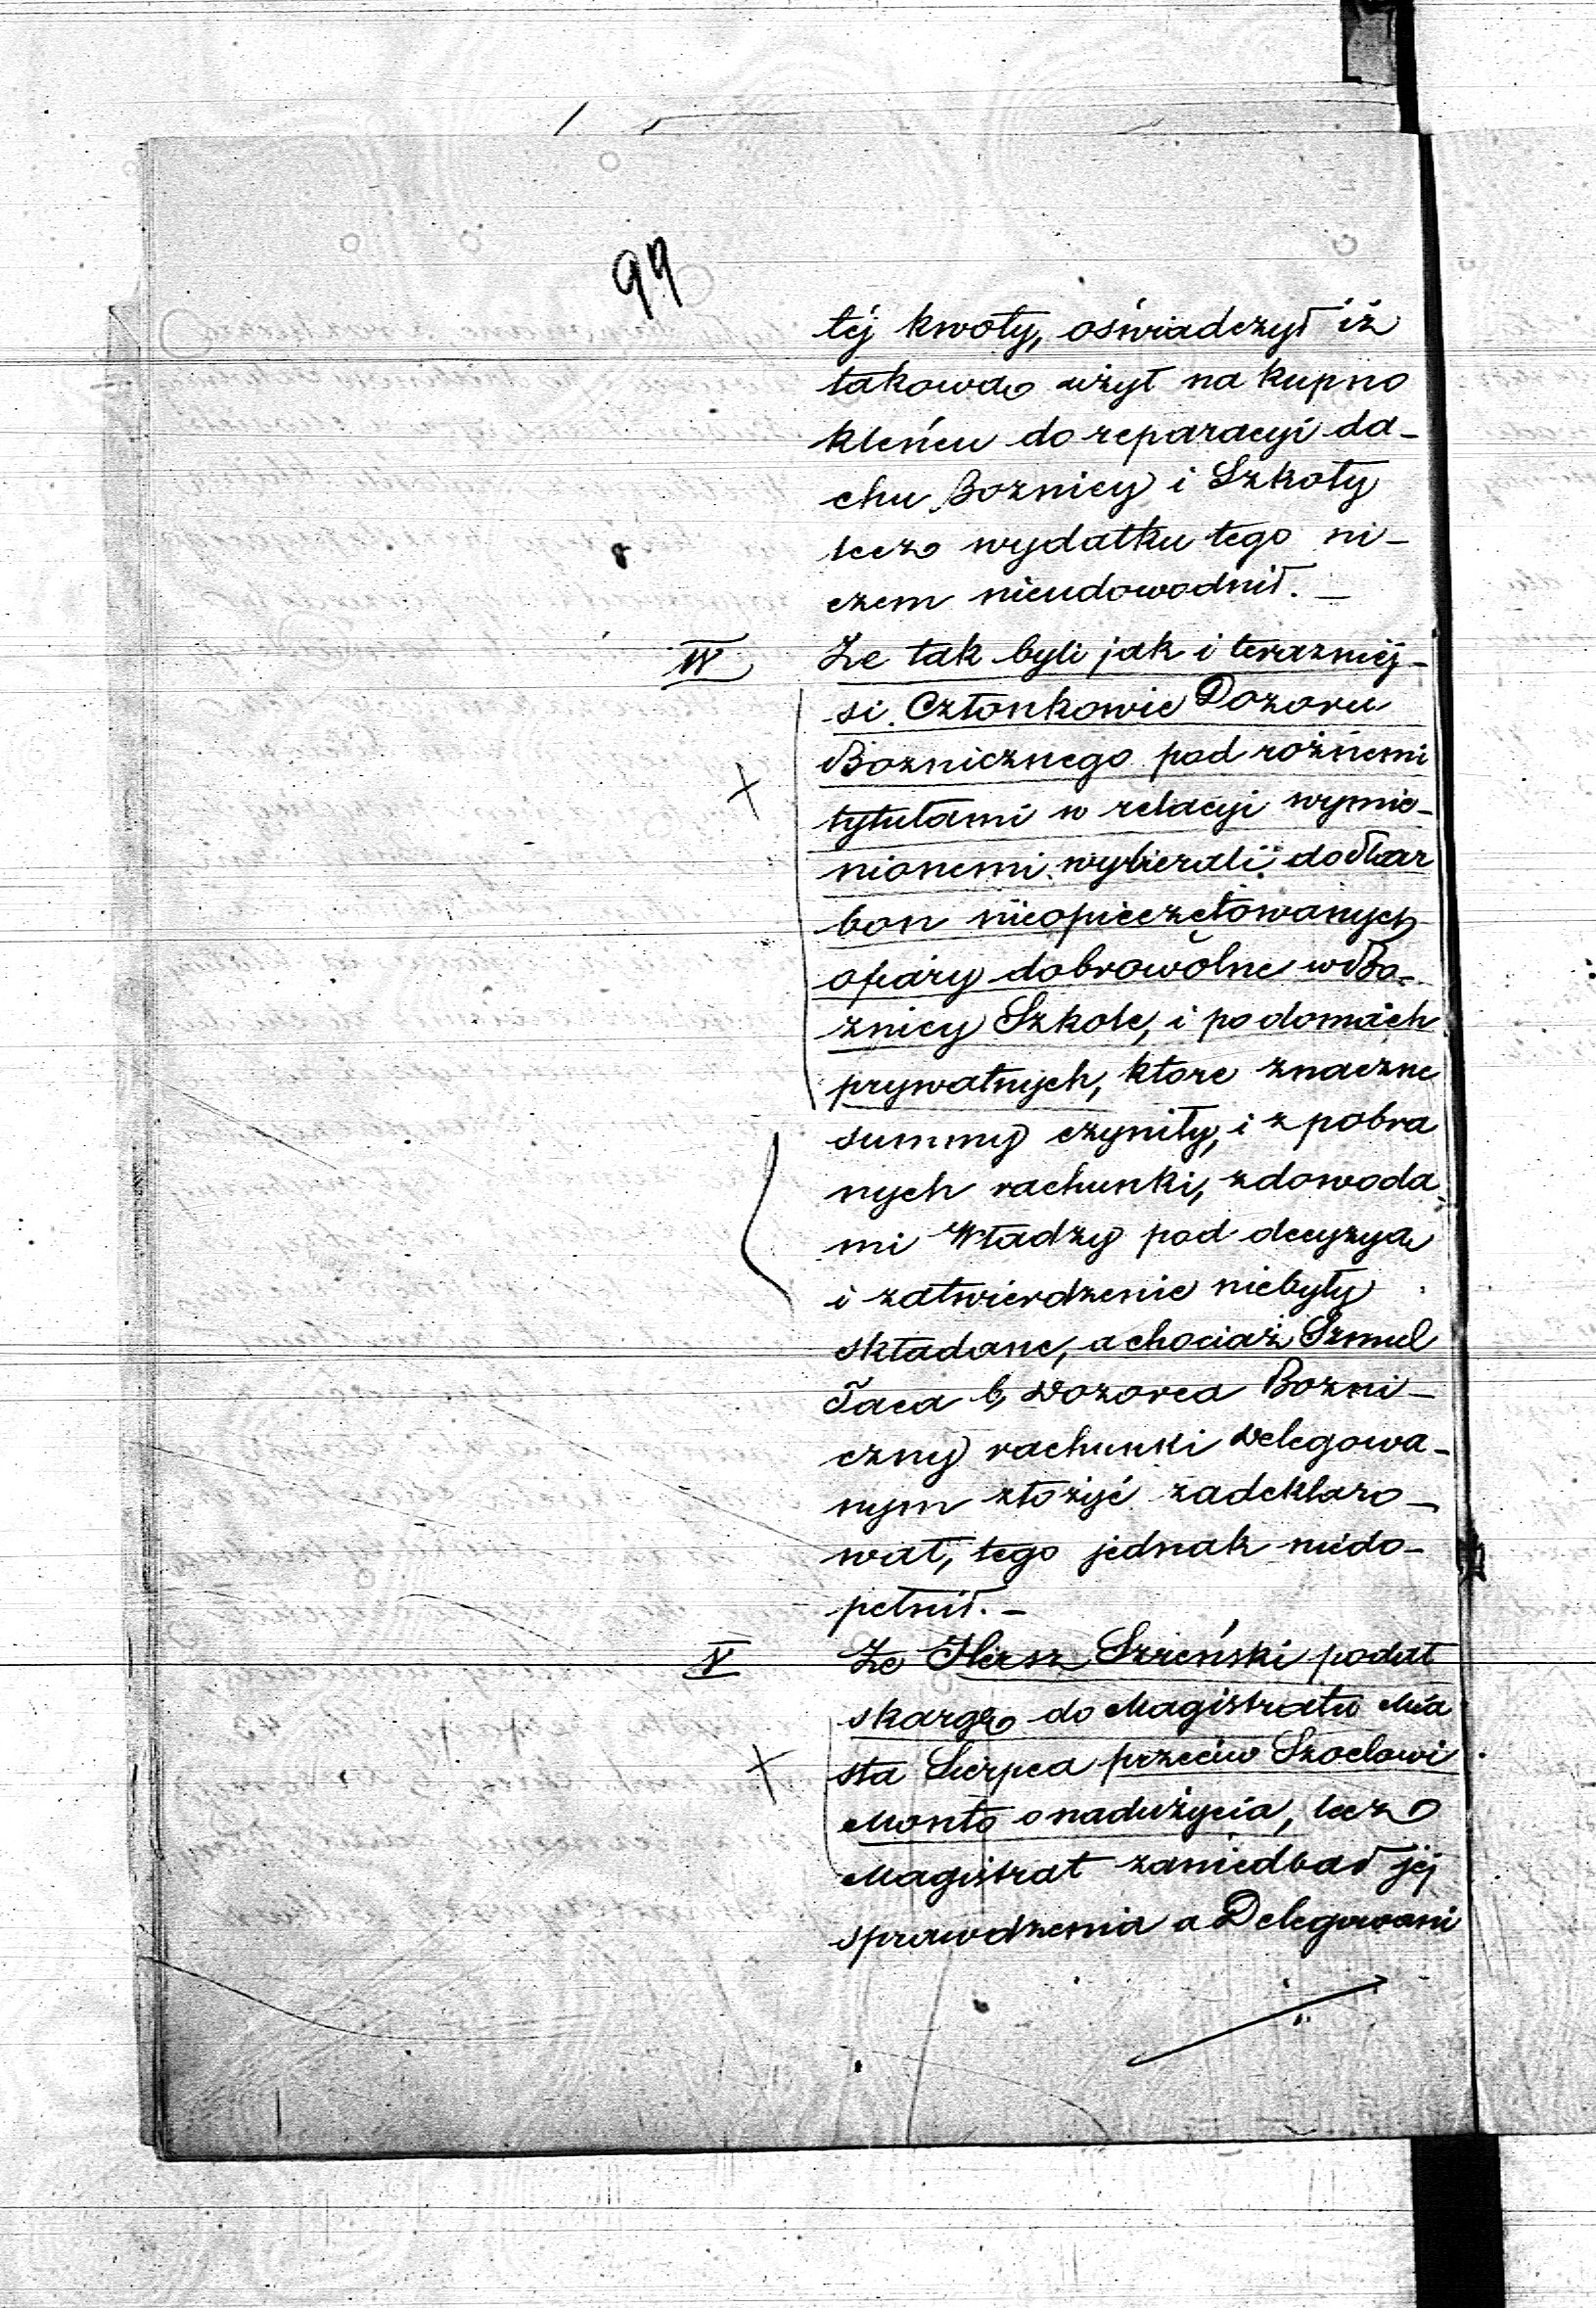 97
téj kwoty, oświadczył iż
takową użył na kupno
kleńcu do reparacyi da-
chu Boznicy i Szkoły
lecz wydatku tego ni-
czem nieudowodnił. —
IV Że tak byli jak i terazniej-
si Członkowie Dozoru
Boznicznego pod rożnemi
tytułami w relacyi wymie-
nionemi wybierali do skar
bon nieopieczętowanych
ofiary dobrowolne w Bo-
znicy Szkole, i po domach
prywatnych, ktore znaczne
summy czyniły, i z pobra
nych rachunki, z dowoda
mi Władzy pod decyzyą
i zatwierdzenie niebyły
składane, a chociaż Szmul
Taca b. Dozorca Bozni-
czny rachunki Delegowa-
nym złożyć zadeklaro-
wał, tego jednak niedo-
pełnił. —
V Że Hersz Szreński podał
skargę do Magistratu Mia
sta Sierpca przeciw Szoelowi
Monto o nadużycia, lecz
Magistrat zaniedbał jéj
sprawdzenia a Delegowani